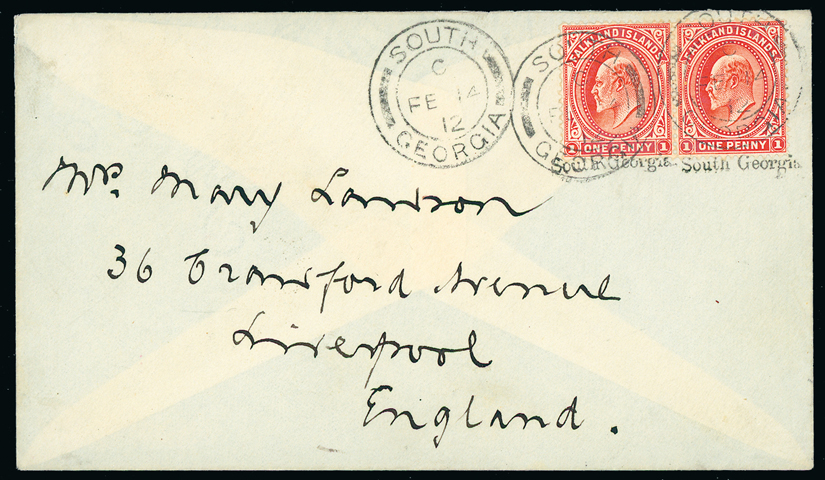 SOUTH
C
FE 14
12
GEORGIA
FALKLAND ISLANDS
1 ONE PENNY 1
South Georgia
FALKLAND ISLANDS
1 ONE PENNY 1
South Georgia
Mrs. Mary Lawson
36 Crawford Avenue
Liverpool
England.